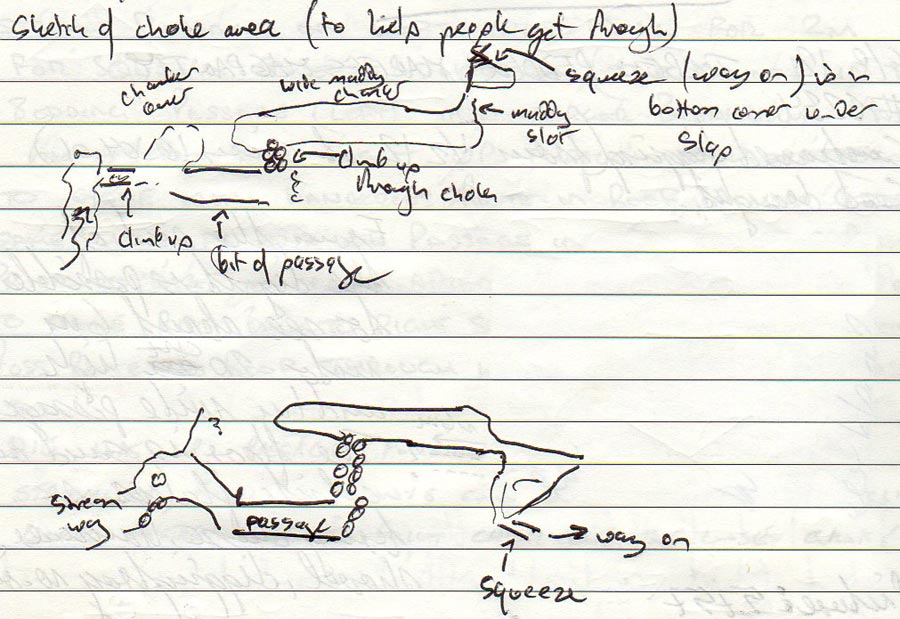 Sketch of choke area (to help people get through)
chamber
over
wide muddy
chamber
squeeze (way on) is in
bottom corner under
slap
muddy
slot
climb up
through choke
climb up
bit of passage
?
stream
way
passage
way on
squeeze